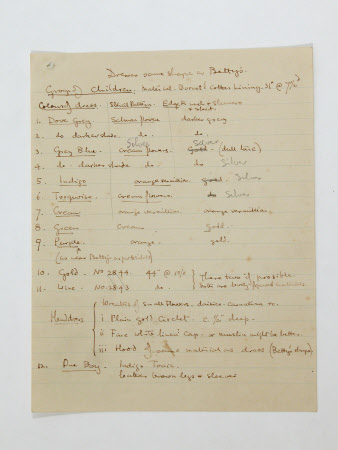 Dress same shape as Betty's.
Group of Children: Material. Dorset Cotton Lining. 31" @ 7½d
Colour of dress. Stencil Pattern. Edge to neck & sleeves & skirt.
1. Dove Grey Salmon flower darker grey
2. do darker shade do. do.
Silver Silver
3. Grey Blue cream flowers. Gold (dull blue)
4. do. darker shade do. do Silver
5. Indigo orange vermilion gold Silver
6. Turquoise cream flowers do Silver
7. Cream orange vermilion orange vermilion.
8. Green Cream gold.
9. Purple orange. gold.
(as near Betty's as possible)
10. Gold - No 2844. 44" @ do. These two if possible
11. Lime - No 2843 do.
Headdress Wreaths of small flowers. daisies. carnations etc.
i. Plain gold circlet. deep.
ii. Fine white linen cap. or muslin might be better.
iii. Hood of same material as dress (Betty's shape)
One Boy. Indigo Tunic.
leather brown legs & sleeves